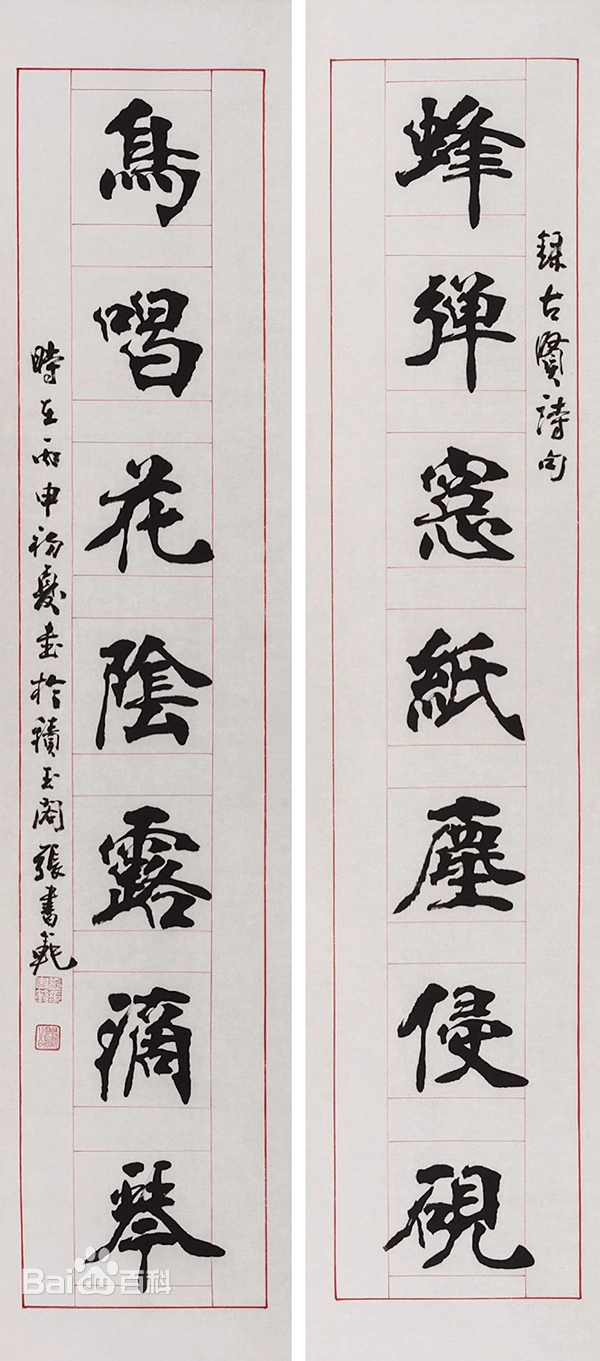 録古賢詩句
蜂弹窓紙塵侵硯
鳥唱花陰露滴琴
時在丙申初夏書於積玉阁張書範
Bai百科